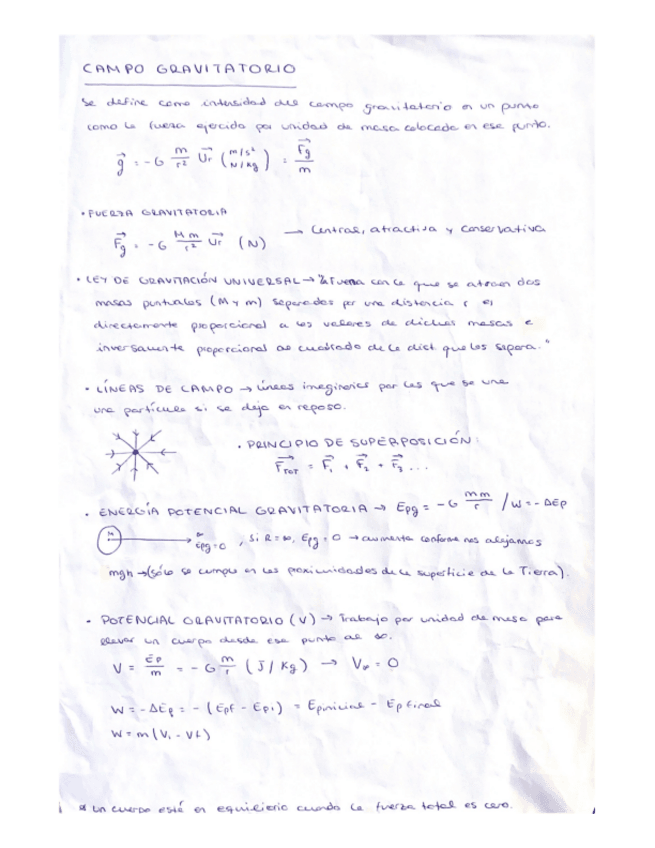 CAMPO GRAVITATORIO
Se define como intensidad del campo gravitatorio en un punto
como la fuerza ejercida por unidad de masa colocada en ese punto.
g⃗ = -G m/r² Ur⃗ (m/s² N/kg) = Fg⃗/m
· FUERZA GRAVITATORIA
Fg⃗ = -G Mm/r² Ur⃗ (N) → Central, atractiva y conservativa
· LEY DE GRAVITACIÓN UNIVERSAL → "La fuerza con la que se atraen dos
masas puntuales (M y m) separadas por una distancia r es
directamente proporcional a los valores de dichas masas e
inversamente proporcional al cuadrado de la dist. que los separa."
· LÍNEAS DE CAMPO → líneas imaginarias por las que se
una partícula si se deja en reposo.
· PRINCIPIO DE SUPERPOSICIÓN:
F⃗TOT = F⃗1 + F⃗2 + F⃗3 ...
· ENERGÍA POTENCIAL GRAVITATORIA → Epg = -G mm/r / W = -ΔEp
M → ∞ Epg = 0 , Si R = ∞, Epg = 0 → aumenta conforme nos alejamos
mgh → (sólo se cumple en las proximidades de la superficie de la Tierra).
· POTENCIAL GRAVITATORIO (V) → Trabajo por unidad de masa para
llevar un cuerpo desde ese punto al ∞.
V = Ep/m = -G m/r (J/Kg) → V∞ = 0
W = -ΔEp = -(Epf - Epi) = Epinicial - Epfinal
W = m(Vi - Vf)
* Un cuerpo está en equilibrio cuando la fuerza total es cero.